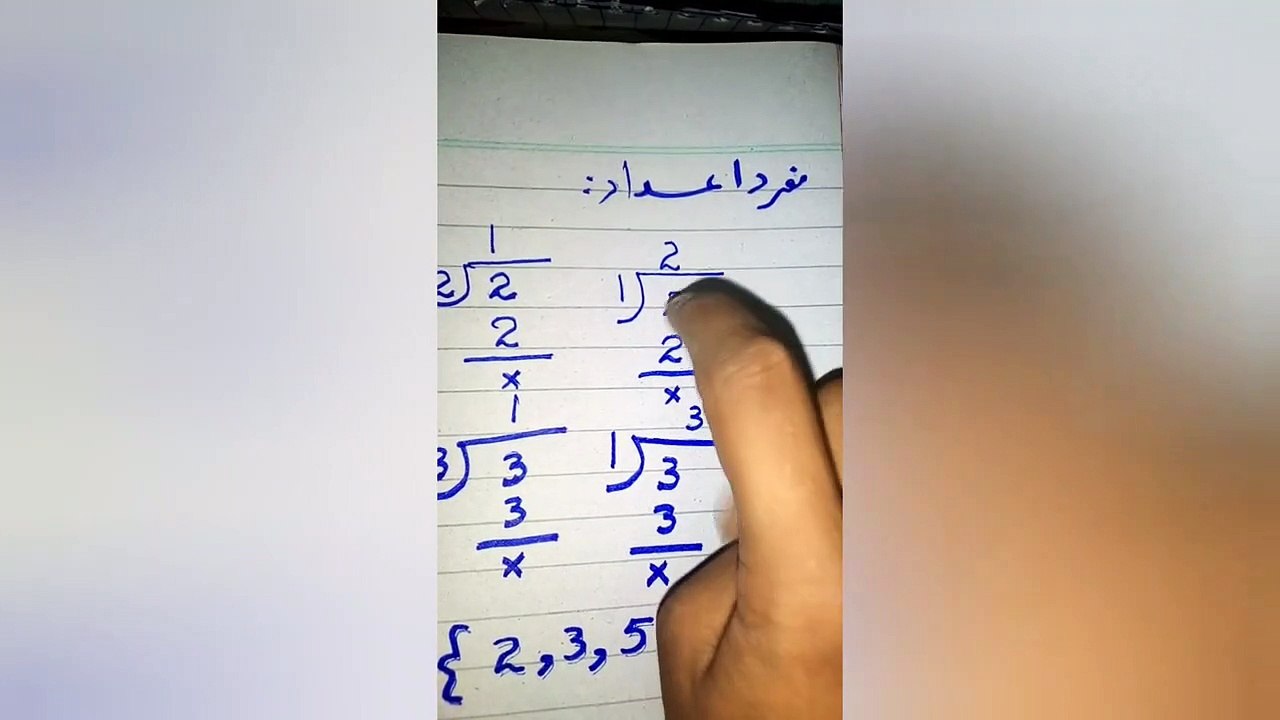 مفرد اعداد:
1 2
2)2 1)2
2 2
x x
1 3
3)3 1)3
3 3
x x
{ 2,3,5